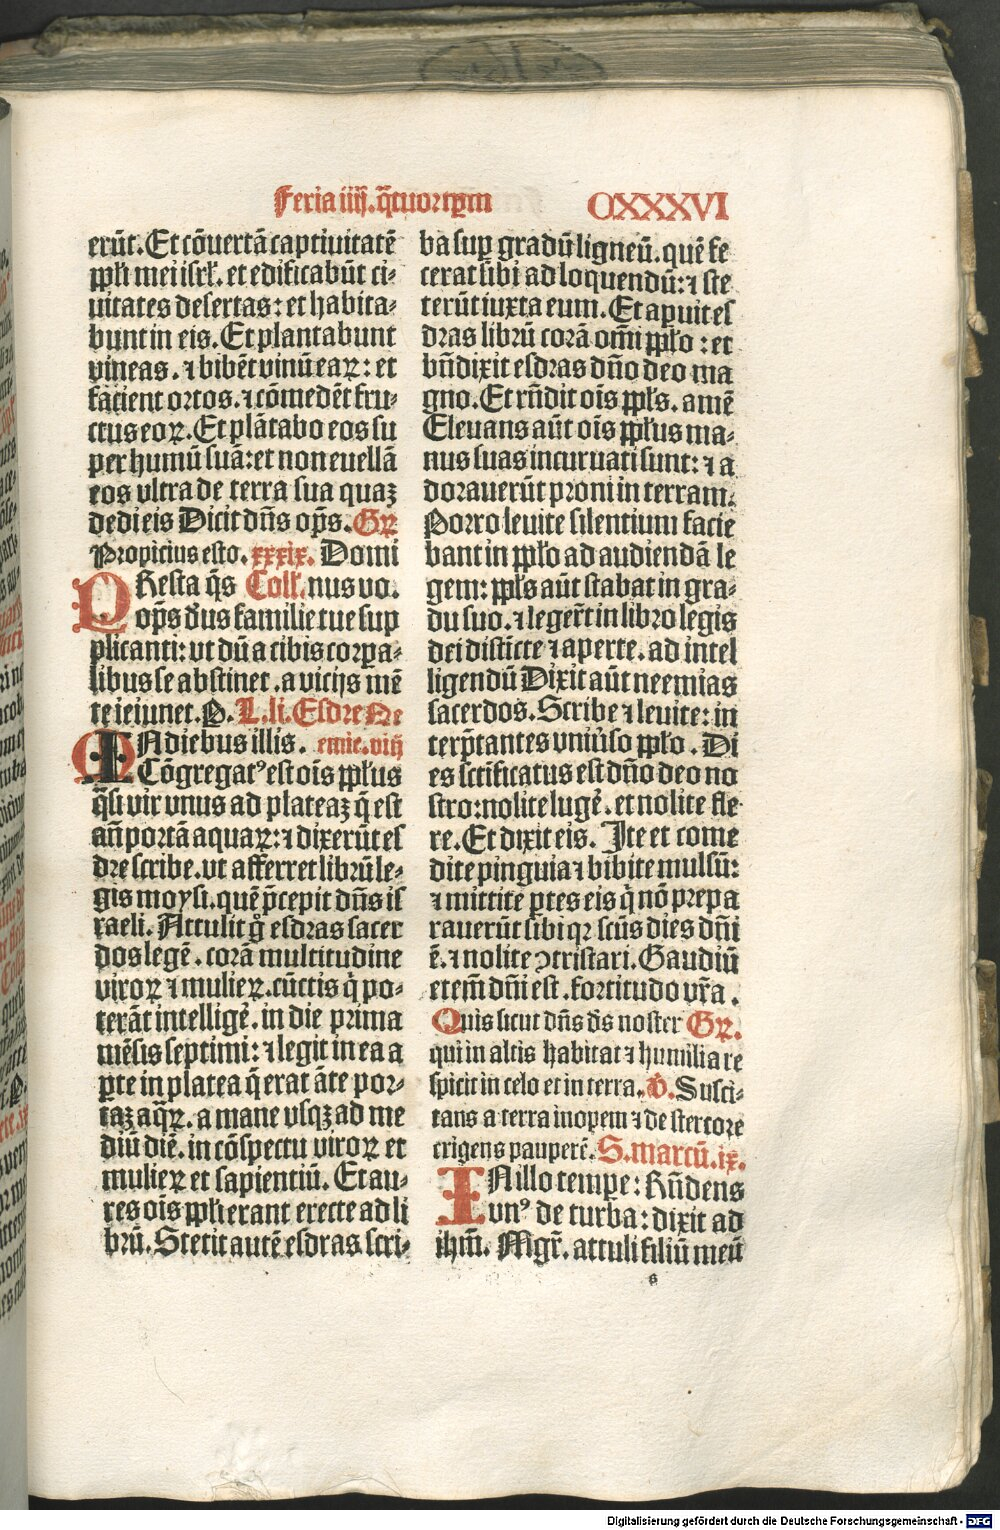 Feria iiij. q̄tuortꝑm
CXXXVI
erūt. Et cōuertā captiuitatē
ppłi mei isrł. et edificabūt ci⸗
uitates desertas: et habita⸗
bunt in eis. Et plantabunt
vineas. ⁊ bibēt vinū eaꝝ: et
facient ortos. ⁊ cōmedēt fru⸗
ctus eoꝝ. Et plātabo eos su
per humū suā: et non euellā
eos vltra de terra sua quaꝫ
dedi eis Dicit dn̄s op̄s. Gꝝ
Propicius esto. xxxix. Domi
PResta q̄s Coll. nus vo.
op̄s d̄us familie tue sup
plicanti: vt dū a cibis corpa⸗
libus se abstinet. a vicijs mē
te ieiunet. P. L. li. Esdre Ne
INdiebus illis. emie. viij
Cōgregatꝰ est oīs ppłus
q̄si vir vnus ad plateaꝫ q̄ est
an̄ portā aquaꝝ: ⁊ dixerūt es
dre scribe. vt afferret librū le⸗
gis moysi. quē p̄cepit dn̄s is
raeli. Attulit g̊ esdras sacer
dos legē. corā multitudine
viroꝝ ⁊ mulieꝝ. cūctis q̇ po⸗
terāt intelligē. in die prima
mēsis septimi: ⁊ legit in ea a
ꝑte in platea q̄ erat āte por⸗
taꝫ aq̄ꝝ. a mane vsqꝫ ad me
diū diē. in cōspectu viroꝝ et
mulieꝝ et sapientiū. Et au⸗
res oīs ppłi erant erecte ad li
brū. Stetit autē esdras scri⸗
ba suꝑ gradū ligneū. quē fe
cerat sibi ad loquendū: ⁊ ste
terūt iuxta eum. Et aperuit es
dras librū corā om̄i ppło: et
bn̄dixit esdras dn̄o deo ma
gno. Et rn̄dit oīs ppłs. amē
Eleuans aūt oīs ppłus ma⸗
nus suas incuruati sunt: ⁊ a
dorauerūt proni in terram.
Porro leuite silentium facie
bant in ppło ad audiendā le
gem: ppłs aūt stabat in gra⸗
du suo. ⁊ legerūt in libro legis
dei distīcte ⁊ aperte. ad intel
ligendū Dixit aūt neemias
sacerdos. Scribe ⁊ leuite: in
terp̄tantes vniūso ppło. Di
es sctificatus est dn̄o deo no
stro: nolite lugē. et nolite fle⸗
re. Et dixit eis. Ite et come
dite pinguia ⁊ bibite mulsū:
⁊ mittite ꝑtes eis q̇ nō prepa
rauerūt sibi qꝛ scūs dies dn̄i
ē. ⁊ nolite ↄtristari. Gaudiū
etem̄ dn̄i est. fortitudo vr̄a.
Quis sicut dn̄s d̄s noster Gꝝ.
qui in altis habitat ⁊ humilia re
spicit in celo et in terra. v̄. Susci⸗
tans a terra inopem ⁊ de stercore
erigens pauperē. S. marcū. ix.
INillo tempe: Rn̄dens
vnꝰ de turba: dixit ad
ihm̄. Mgr̄. attuli filiū meū
s
Digitalisierung gefördert durch die Deutsche Forschungsgemeinschaft - DFG